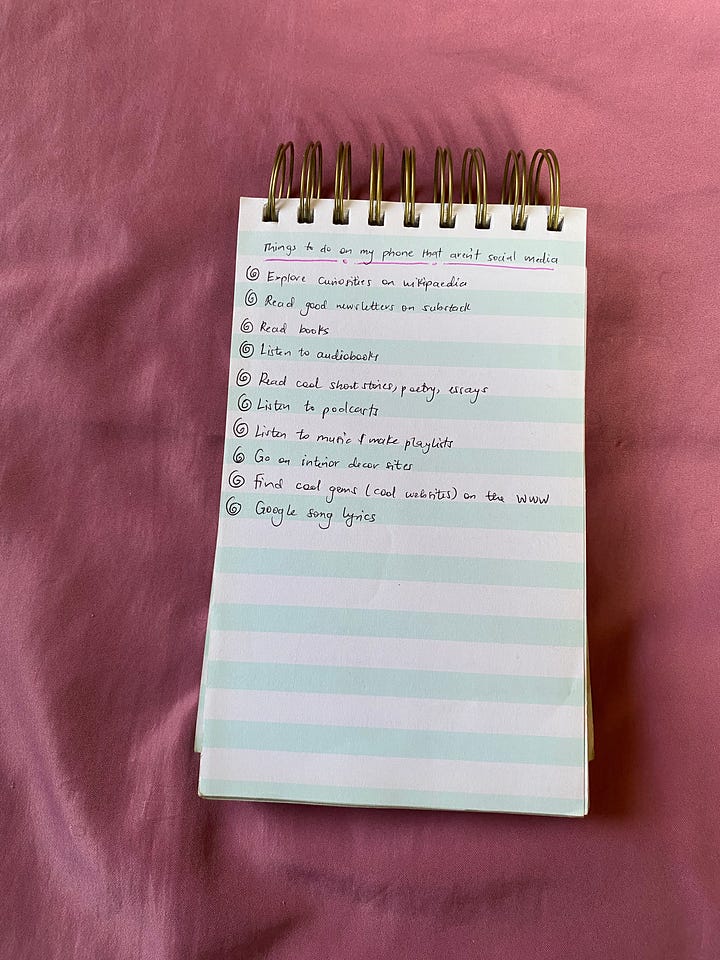 Things to do on my phone that aren't social media
Explore curiosities on wikipaedia
Read good newsletters on substack
Read books
Listen to audiobooks
Read cool short stories, poetry, essays
Listen to podcasts
Listen to music & make playlists
Go on interior decor sites
Find cool gems (cool websites) on the WWW
Google song lyrics